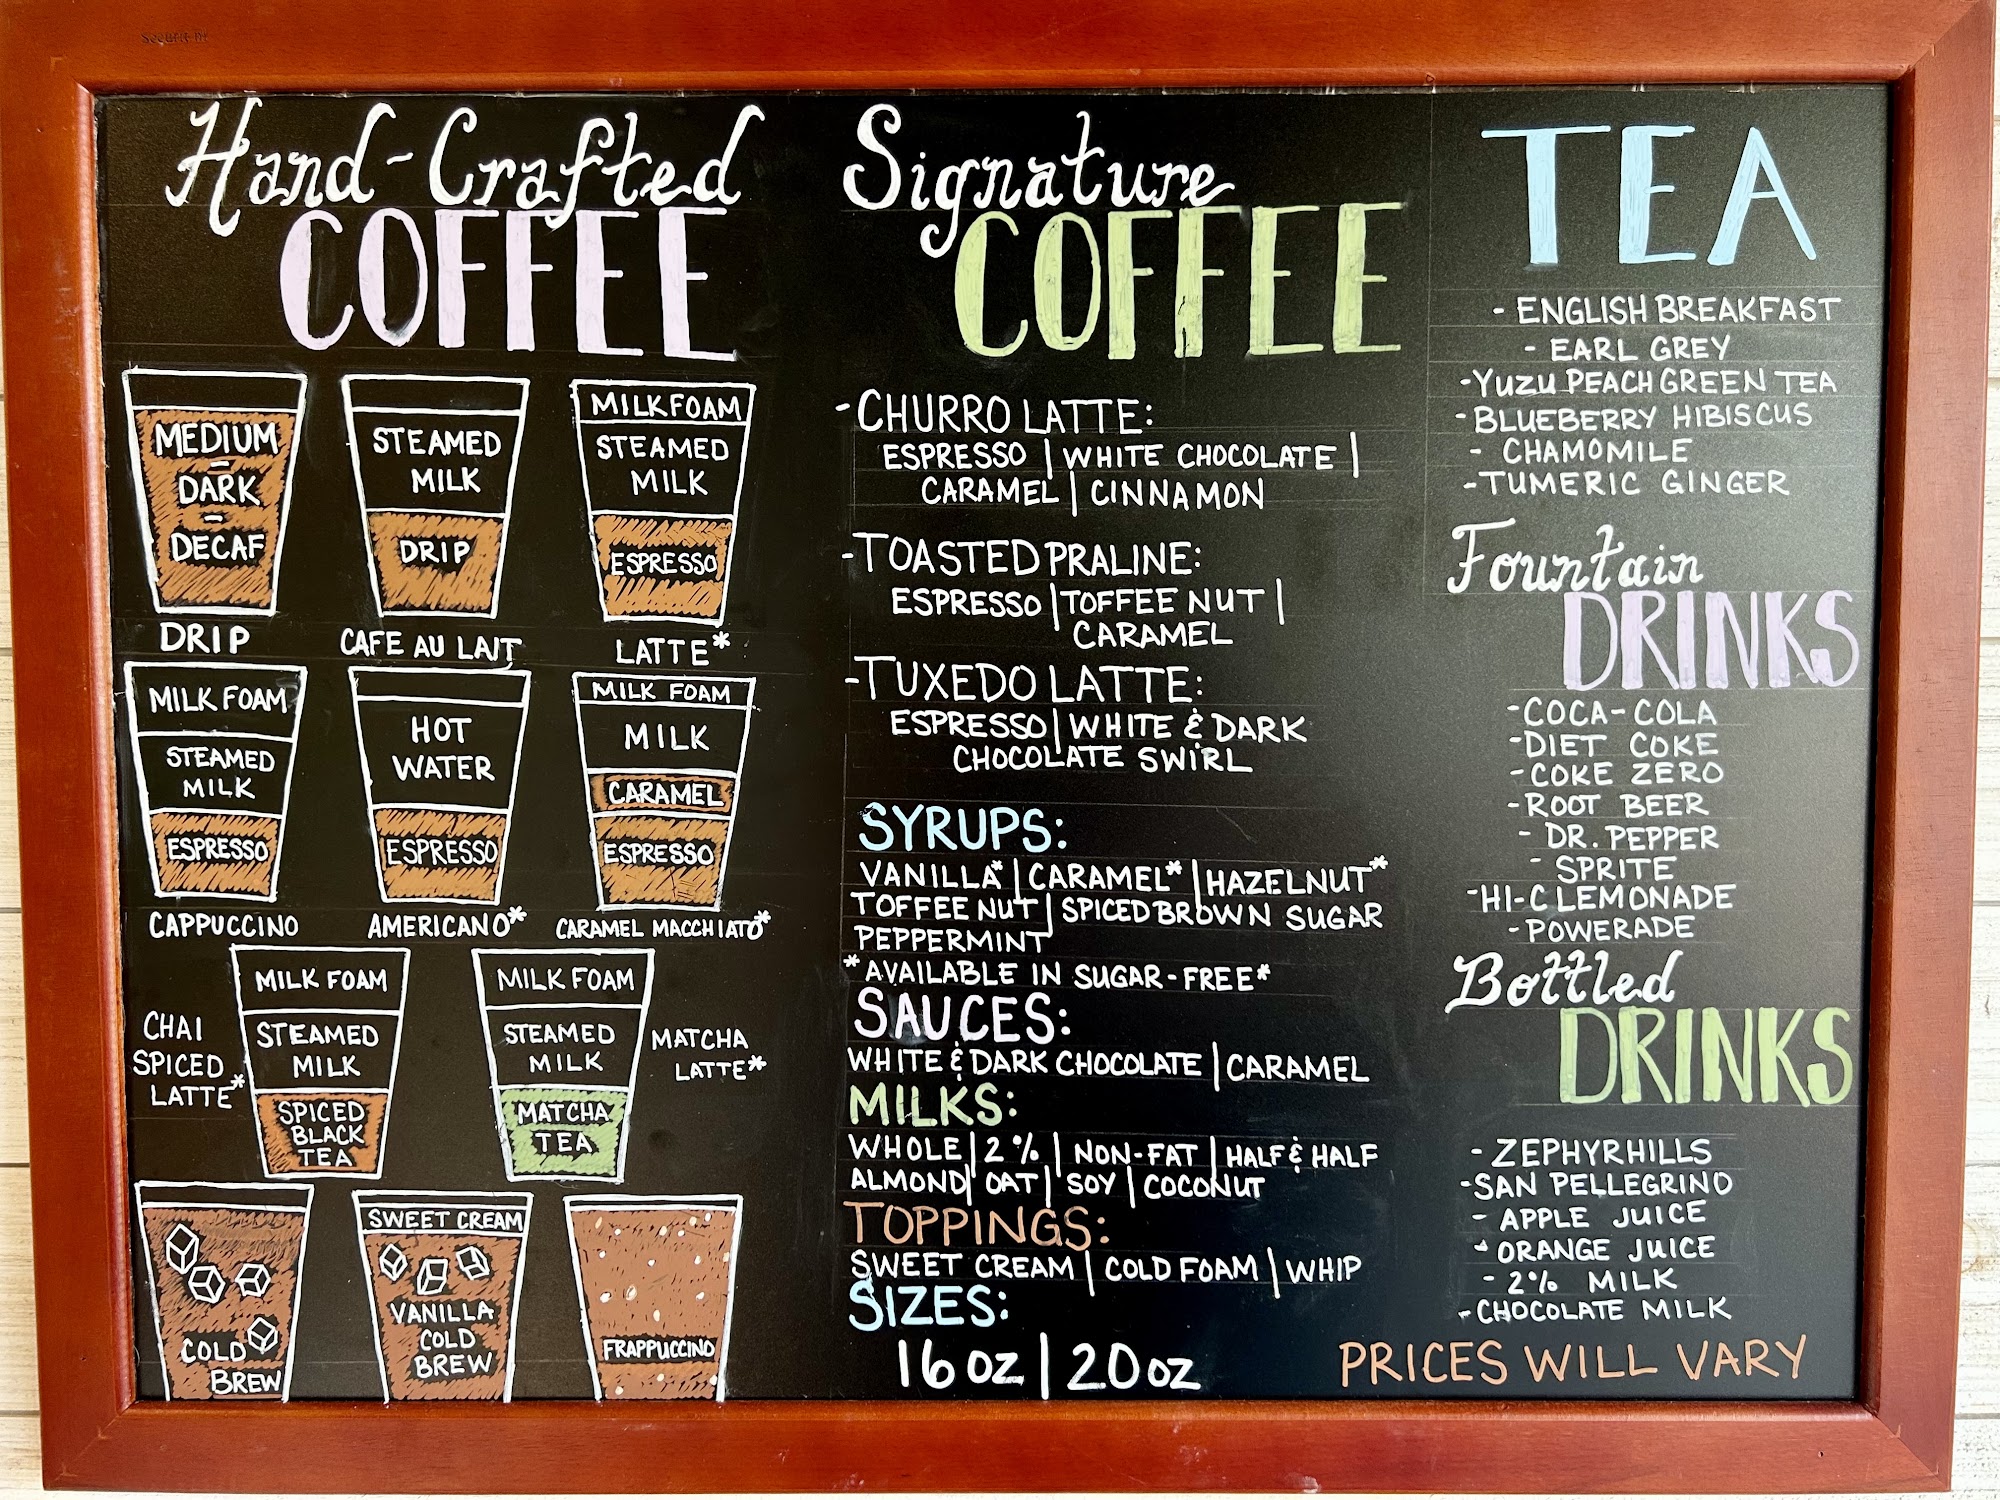 Securit
Hand-Crafted
COFFEE
MEDIUM
-
DARK
-
DECAF
DRIP
STEAMED
MILK
DRIP
CAFE AU LAIT
MILK FOAM
STEAMED
MILK
ESPRESSO
LATTE*
MILK FOAM
STEAMED
MILK
ESPRESSO
CAPPUCCINO
HOT
WATER
ESPRESSO
AMERICANO*
MILK FOAM
MILK
CARAMEL
ESPRESSO
CARAMEL MACCHIATO*
CHAI
SPICED
LATTE*
MILK FOAM
STEAMED
MILK
SPICED
BLACK
TEA
MILK FOAM
STEAMED
MILK
MATCHA
TEA
MATCHA
LATTE*
COLD
BREW
SWEET CREAM
VANILLA
COLD
BREW
FRAPPUCCINO
Signature
COFFEE
-CHURRO LATTE:
ESPRESSO | WHITE CHOCOLATE |
CARAMEL | CINNAMON
-TOASTED PRALINE:
ESPRESSO | TOFFEE NUT |
CARAMEL
-TUXEDO LATTE:
ESPRESSO | WHITE & DARK
CHOCOLATE SWIRL
SYRUPS:
VANILLA* | CARAMEL* | HAZELNUT*
TOFFEE NUT | SPICED BROWN SUGAR
PEPPERMINT
*AVAILABLE IN SUGAR-FREE*
SAUCES:
WHITE & DARK CHOCOLATE | CARAMEL
MILKS:
WHOLE | 2% | NON-FAT | HALF & HALF
ALMOND | OAT | SOY | COCONUT
TOPPINGS:
SWEET CREAM | COLD FOAM | WHIP
SIZES:
16 oz | 20 oz
TEA
- ENGLISH BREAKFAST
- EARL GREY
-YUZU PEACH GREEN TEA
-BLUEBERRY HIBISCUS
- CHAMOMILE
-TUMERIC GINGER
Fountain
DRINKS
-COCA-COLA
-DIET COKE
-COKE ZERO
-ROOT BEER
- DR. PEPPER
- SPRITE
-HI-C LEMONADE
-POWERADE
Bottled
DRINKS
- ZEPHYRHILLS
-SAN PELLEGRINO
- APPLE JUICE
- ORANGE JUICE
- 2% MILK
-CHOCOLATE MILK
PRICES WILL VARY